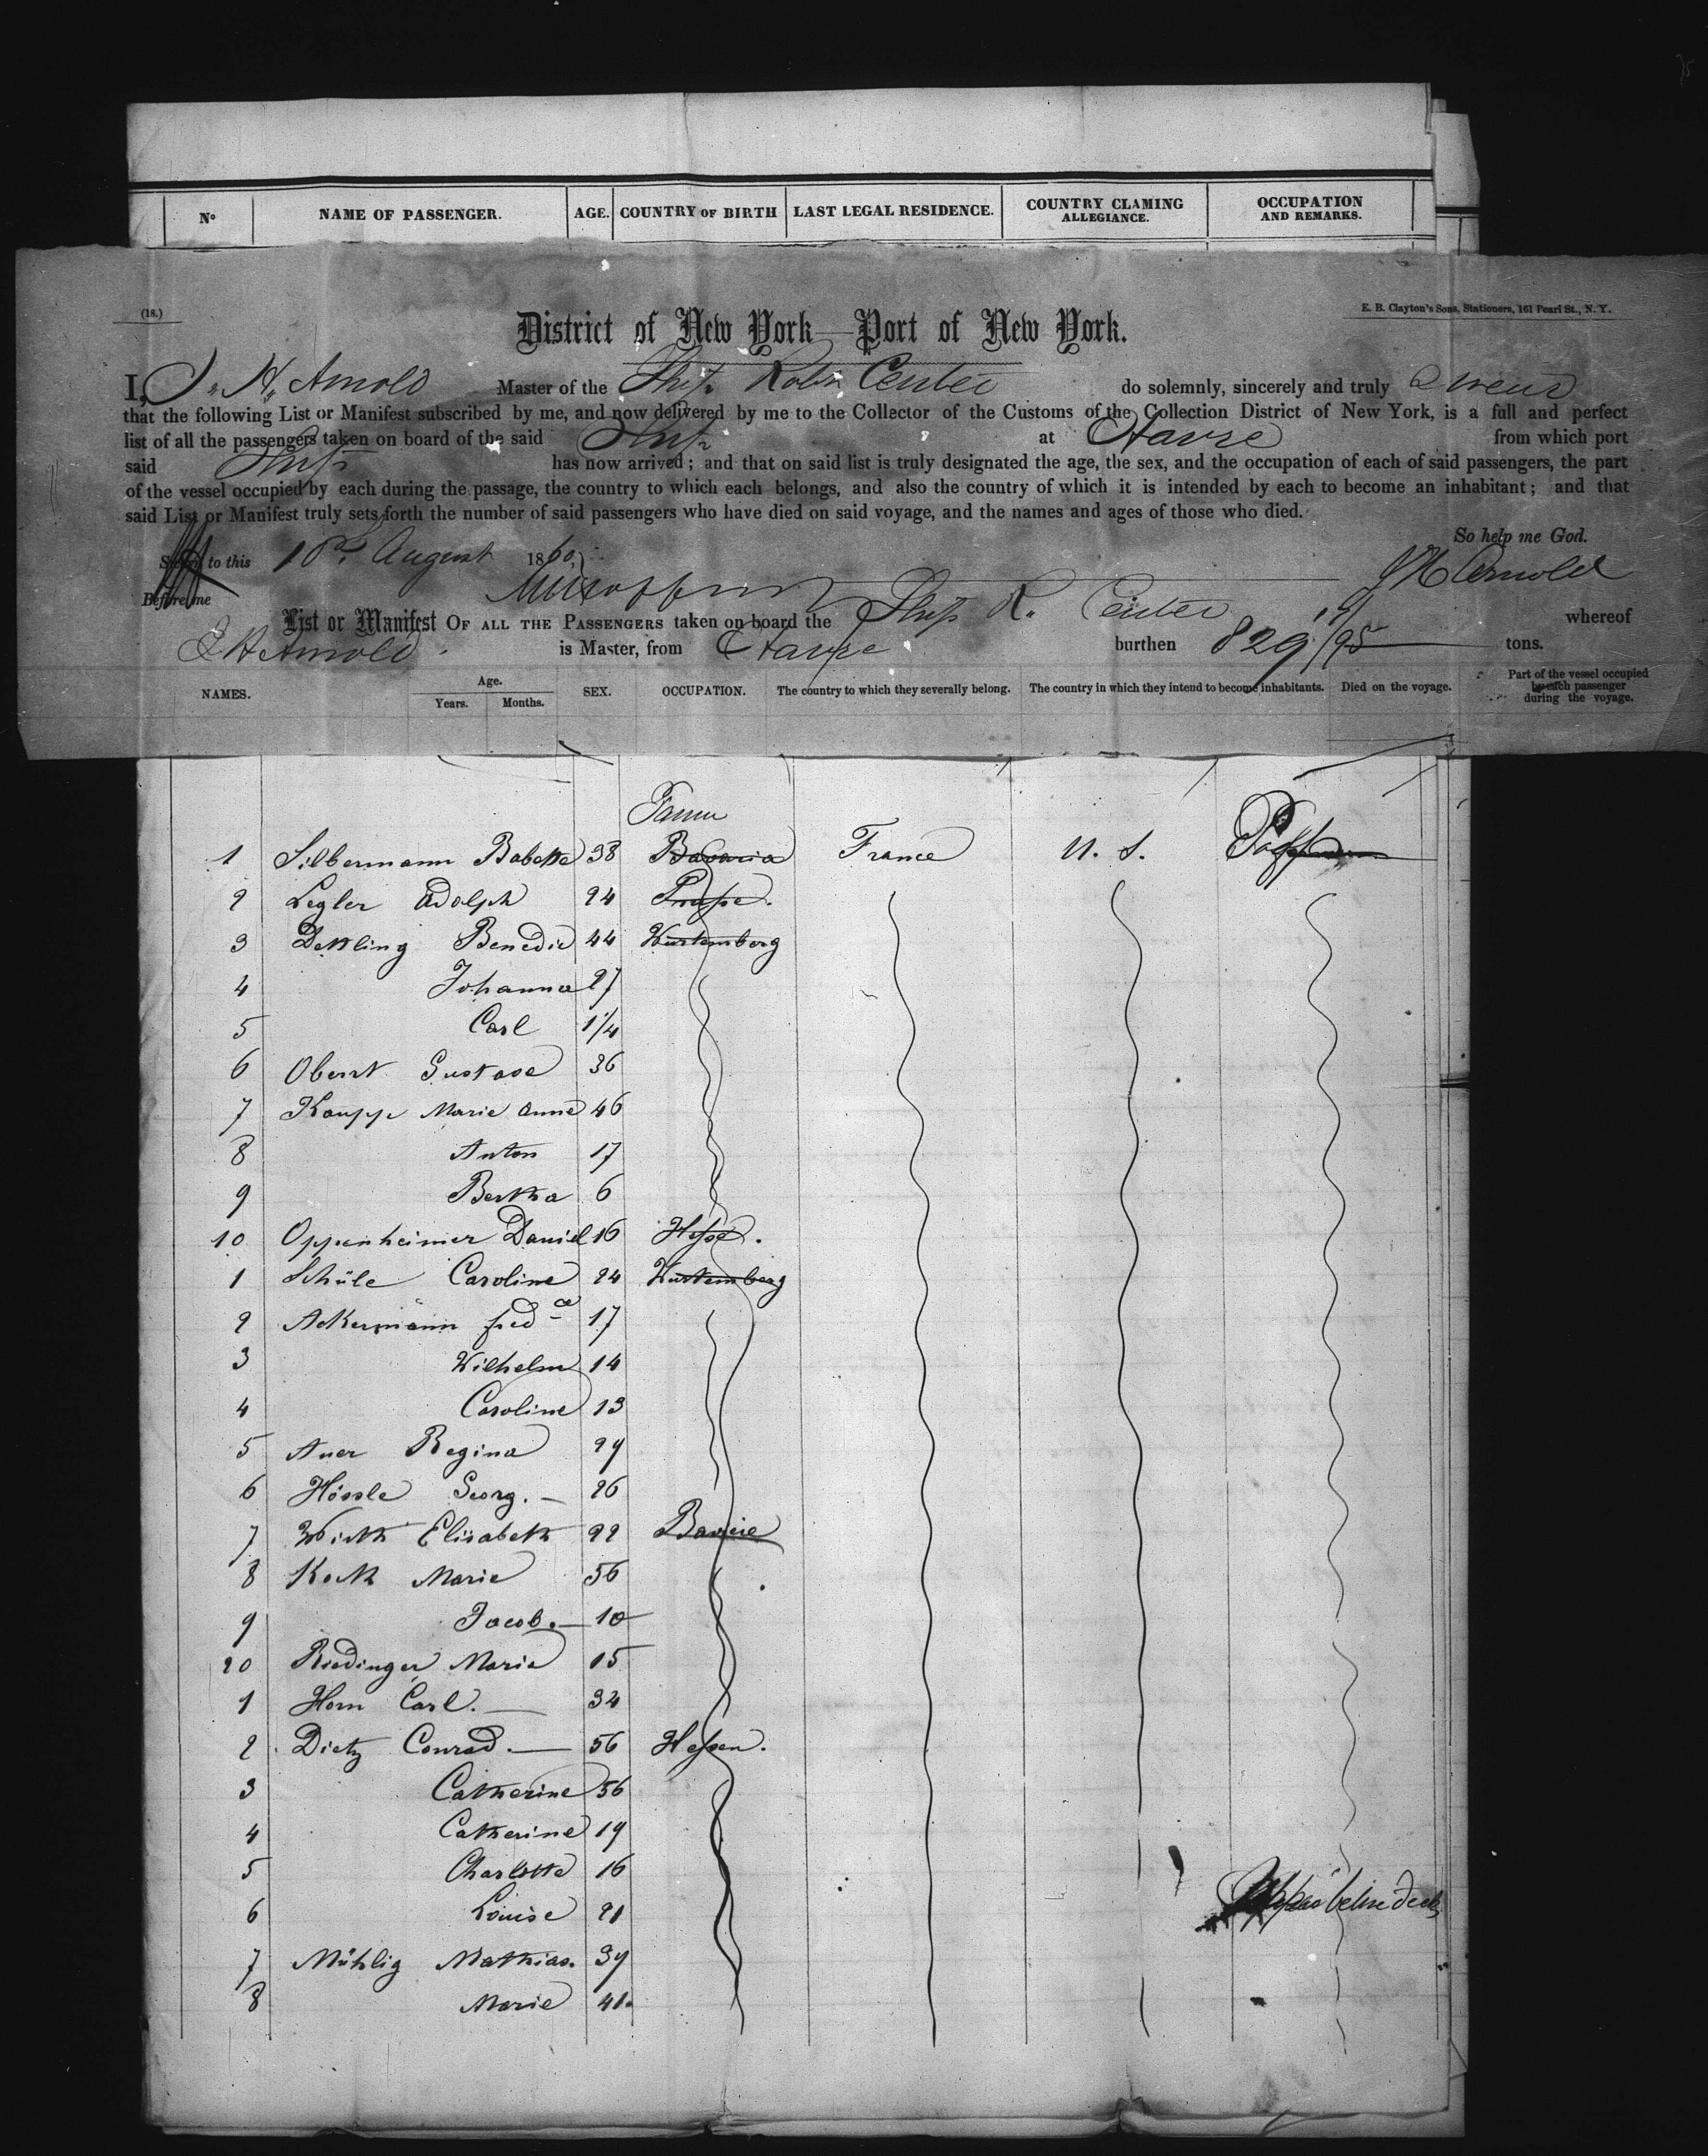 N° NAME OF PASSENGER. AGE. COUNTRY OF BIRTH LAST LEGAL RESIDENCE. COUNTRY CLAMING ALLEGIANCE. OCCUPATION AND REMARKS.
(18.)
E. B. Clayton's Sons, Stationers, 161 Pearl St., N. Y.
District of New York—Port of New York.
I, J. H. Arnold Master of the Ship Robt Center do solemnly, sincerely and truly swear
that the following List or Manifest subscribed by me, and now delivered by me to the Collector of the Customs of the Collection District of New York, is a full and perfect
list of all the passengers taken on board of the said Ship at Havre from which port
said Ship has now arrived; and that on said list is truly designated the age, the sex, and the occupation of each of said passengers, the part
of the vessel occupied by each during the passage, the country to which each belongs, and also the country of which it is intended by each to become an inhabitant; and that
said List or Manifest truly sets forth the number of said passengers who have died on said voyage, and the names and ages of those who died.
So help me God.
Sworn to this 10 August 1860
J H Arnold
Before me
List or Manifest OF ALL THE PASSENGERS taken on board the Ship R. Center whereof
J H Arnold is Master, from Havre burthen 829 19/95 tons.
NAMES. Age. Years. Months. SEX. OCCUPATION. The country to which they severally belong. The country in which they intend to become inhabitants. Died on the voyage. Part of the vessel occupied by each passenger during the voyage.
1 Silbermann Babette 38 Bavaria France U. S.
2 Legler Adolph 24 Prusse.
3 Dettling Benedic 44 Wurtemberg
4 Johanna 27
5 Carl 1 1/4
6 Oberst Gustave 36
7 Kaupp Marie Anne 46
8 Anton 17
9 Bertha 6
10 Oppenheimer Daniel 16 Hesse.
1 Schüle Caroline 24 Wurtemberg
2 Ackermann fredce 17
3 Wilhelm 14
4 Caroline 13
5 Auer Regina 29
6 Hössle Georg. — 26
7 Wirth Elisabeth 22 Baviere
8 Koth Marie 56
9 Jacob. — 10
20 Riedinger Marie 15
1 Horn Carl. — 34
2 Dietz Conrad. — 56 Hessen.
3 Catherine 56
4 Catherine 19
5 Charlotte 16
6 Louise 21
7 Mühlig Mathias. 39
8 Marie 41.